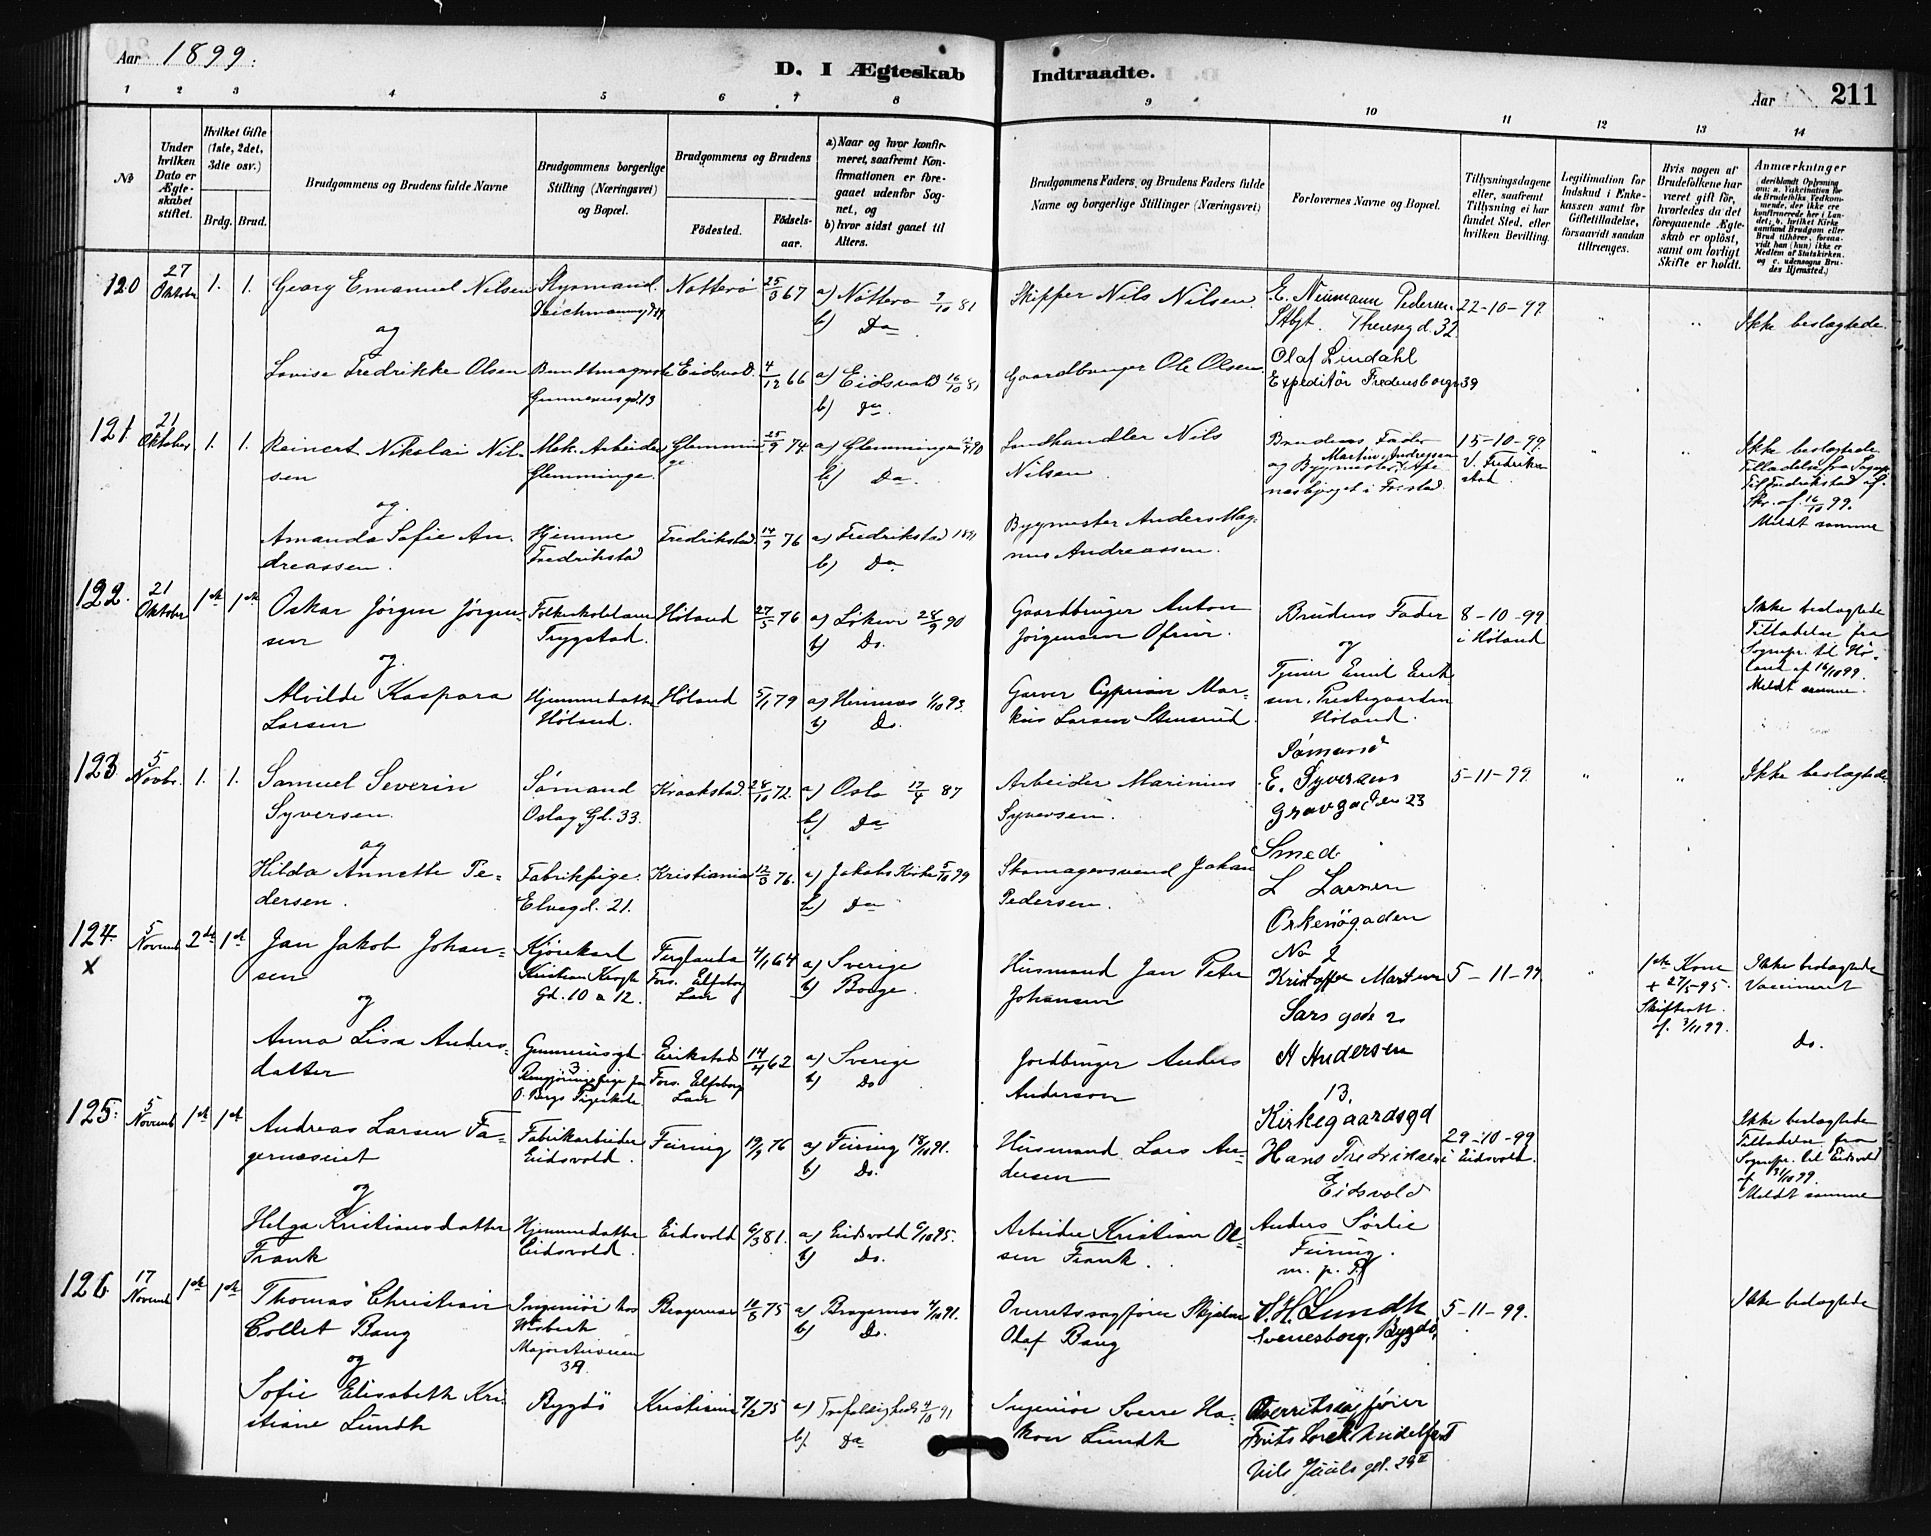 Aar 1899.
D. I Ægteskab Indtraadte.
Aar 211
1 2 3 4 5 6 7 8 9 10 11 12 13 14
No
Under hvilken Dato er Ægteskabet stiftet.
Hvilket Gifte (1ste, 2det, 3die osv.)
Brdg. Brud.
Brudgommens og Brudens fulde Navne
Brudgommens borgerlige Stilling (Næringsvei) og Bopæl.
Brudgommens og Brudens
Fødested. Fødsels-aar.
a) Naar og hvor konfirmeret, saafremt Konfirmationen er foregaaet udenfor Sognet, og
b) hvor sidst gaaet til Alters.
Brudgommens Faders og Brudens Faders fulde Navne og borgerlige Stillinger (Næringsvei)
Forlovernes Navne og Bopæl.
Tillysningsdagene eller, saafremt Tillysning ei har fundet Sted, efter hvilken Bevilling.
Legitimation for Indskud i Enkekassen samt for Giftetilladelse, forsaavidt saadan tiltrænges.
Hvis nogen af Brudefolkene har været gift før, hvorledes da det foregaaende Ægteskab er opløst, samt om lovligt Skifte er holdt.
Anmærkninger
120 27 Oktober 1. 1. Georg Emanuel Nilsen Styrmand. Nøtterø 25/3 67 a) Nøtterø 9/10 81 b) Do
Skipper Nils Nilsen E. Neumann Pedersen Stbgt. Theresegd. 32 22-10-99 Ikke beslægtede.
og
Lovise Fredrikke Olsen Gunnerusgd. 13 Eidsvold. 4/12 66 a) Eidsvold 16/10 81 b) Do.
Gaardbruger Ole Olsen. Olaf Lindahl Expeditør Fredensborgv 39
121. 21 Oktober 1. 1. Reinert Nikolai Nilsen Mek. Arbeider Glemminge. Glemminge 25/9 74. a) Glemminge 90 b) Do.
Nils Nilsen Brudens Fader Martin Andressen og Bygmester 15-10-99. i Fredrikstad
Ikke beslægtede Tilladelse fra Sognepr. til Fredrikstad af 16/10 99. Meldt samme
og
Amanda Sofie Andreassen. Hjemme Fredrikstad Fredrikstad 14/9 76 a) Fredrikstad 1891 b) Do.
Bygmester Anders Magnus Andreassen.
122. 21 Oktober 1ste 1ste Oskar Jørgen Jørgensen Trygstad. Høland 27/5 76 a) Løken 28/9 90 b) Do.
Gaardbruger Anton Jørgensen Brudens Fader og 8-10-99 i Høland
Ikke beslægtede Tilladelse fra Sognepr. til Høland af 16/10 99. Meldt samme.
og
Alvilde Kaspara Larsen Hjemmedatter Høland. Høland 5/1 79 a) Hemnes 1/10 93. b) Do.
Garver Cyprian Markus Larsen Stensrud. Tjener Emil Eriksen, Prestegaarden Høland.
123 5 Novbr. 1. 1. Samuel Severin Syversen. Sømand Oslog. Gd. 33. Kraakstad. 28/10 72. a) Oslo 17/4 87 b) Do
Arbeider Marinius Syversen. Sømand E. Syversens Grøvgaden 23 5-11-99. Ikke beslægtede
og
Hilda Annette Pedersen. Fabrikpige. Elvegd. 21. Kristiania 12/3 76. a) Jakobs Kirke 5/10 b) Do
Skomagersvend Johan Pedersen. Smed L Larsen Orkenøgaden No 2
124. x 5 Novemb 2det 1ste Jan Jakob Johansen Kjørekarl Kristian Kroghs Gd. 10 a 12. Ferglanda Fors. Elfsborg Læn 4/1 64 a) Sverige b) Borge.
Husmand Jan Peter Johansen Kristoffer Martinsen Sars gade 2 5-11-99 1ste Kone + 27/5-95. Skifteatt. af 3/11 99. Ikke beslægtede Vaccineret
og
Anna Lisa Andersdatter Gunnerusgd. 3 Rengjøringspige Erikstad Fors. Elfsborg Læn 14/4 62 a) Sverige b) Do
Jordbruger Anders Anderson H Andersen 13. Kirkegaardsgd Do.
125. 5 Novemb 1ste 1ste Andreas Larsen Fagernæseiet Fabrikarbeider Eidsvold. Feiring 19/9 76 a) Feiring 18/10 91. b) Do.
Husmand Lars Andersen Hans Fredriksen Eidsvold 29-10-99 i Eidsvold.
Ikke beslægtede Tilladelse fra Sognepr. til Eidsvold af 31/10 99. Meldt samme
og
Helga Kristiansdatter Frank Hjemmedatter Eidsvold. Eidsvold 6/3 81. a) Eidsvold 6/10 95. b) Do.
Arbeider Kristian Olsen Frank. Anders Sørlie Feiring. m. p. P.
126. 17 Novemb 1ste 1ste Thomas Christian Collet Bang Ingeniør hos Majorstuveien 39. Bragernæs 75 a) Bragernæs 4/10 91. b) Do.
Overretssagfører Skjalm Olaf Bang S. H. Lundh Sverresborg, Bygdø. 5-11-99. Ikke beslægtede
og
Sofie Elisabeth Kristiane Lundh Bygdø Kristiania 7/2 75 a) Trefoldigheds 4/10 91 b) Do
Ingeniør Sverre Hakon Lundh Overretssagfører Nils Juuls gd. 29